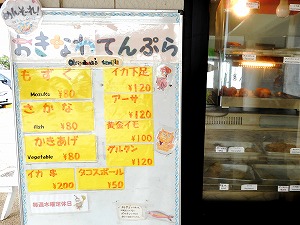 めんそーれ!
おきなわてんぷら
Okinawa's templa
もずく
Mozuku ¥80
さかな
fish ¥80
かきあげ
Vegetable ¥80
イカ串
¥200
イカ下足
¥120
アーサ
¥120
黄金イモ
¥100
グルクン
¥120
タコスボール
¥50
毎週木曜定休日